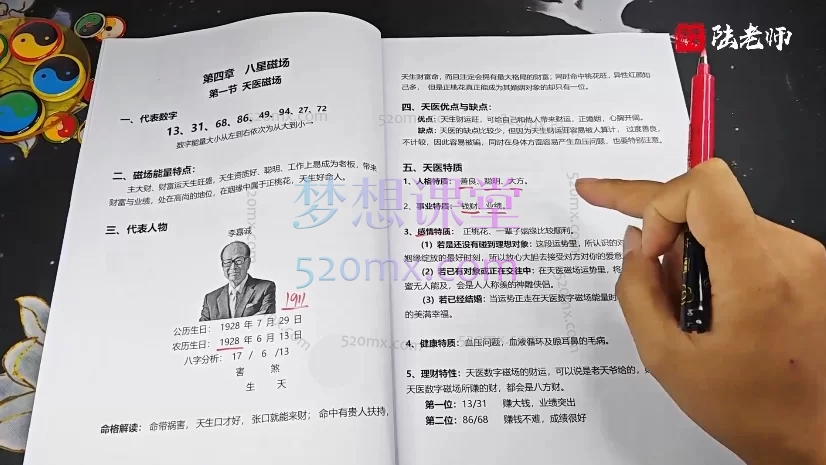 陆老师
第四章 八星磁场
第一节 天医磁场
一、代表数字
13、31、68、86、49、94、27、72
数字能量大小从左到右依次为从大到小一
二、磁场能量特点：
主大财、财富运天生旺盛，天生资质好、聪明，工作上易成为老板，带来
财富与业绩，处在高尚的地位，在姻缘中属于正桃花，天生好命人。
三、代表人物
李嘉诚
1911
公历生日： 1928 年 7 月 29 日
农历生日： 1928 年 6 月 13 日
八字分析： 17 / 6 /13
害 煞
生 天
命格解读： 命带祸害， 天生口才好， 张口就能来财； 命中有贵人扶持，
天生财富命，而且注定会拥有最大格局的财富；同时命中桃花旺，异性红颜知
己多， 但是正桃花真正能成为其婚姻对象的却只有一位。
四、天医优点与缺点：
优点：天生财运旺，可给自己和他人带来财运，正婚姻，心胸开阔。
缺点：天医的缺点比较少，但因为天生财运旺容易被人算计， 过度善良，
不计较，因此容易被骗，同时在身体方面容易产生血压问题，也要特别注意。
五、天医特质
1、人格特质：善良、聪明、大方。
2、事业特质：钱财、业绩。
3、感情特质： 正桃花，一辈子姻缘比较顺利。
（1）若是还没有碰到理想对象：这段运势里，所认识的对
姻缘绽放的最好时刻，所以放心大胆去接受对方对你的爱意
（2）若已有对象或正在交往中：在天医磁场运势里，将
蜜无人能及，会是人人称羡的神雕侠侣。
（3）若已经结婚：当运势正走在天医数字磁场能量时
的美满幸福。
4、健康特质：血压问题，血液循环及眼耳鼻的毛病。
5、理财特性：天医数字磁场的财运，可以说是老天爷给的，
天医数字磁场所赚的财，都会是八方财。
第一位：13/31 赚大钱，业绩突出
第二位：86/68 赚钱不难，成绩很好
梦想课堂
520mx.com